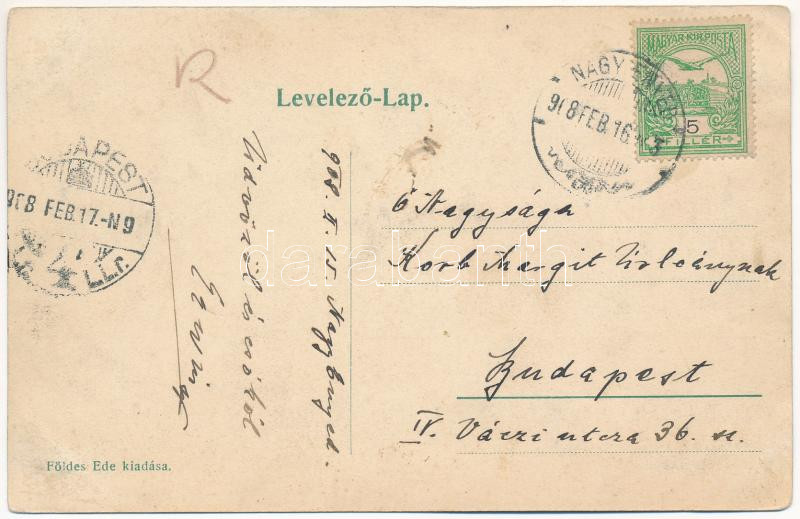 R
Levelező-Lap.
MAGYAR KIR. POSTA
5
FILLÉR
NAGY-ENYED
908 FEB. 16.
BUDAPEST
908 FEB. 17.-N 9
908. II. 15. Nagyenyed.
Üdvözöl és csókol
Ervin
Ő Nagysága
Korb Margit Úrleánynak
Budapest
IV. Váczi utcza 36. sz.
Földes Ede kiadása.
darabanth